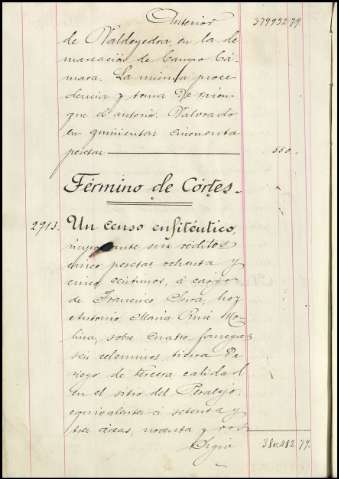 Anterior 37993279
de Valdoyedra, en la de
marcación de Campo Cá-
mara. La misma proce
dencia y toma de
que el anterior. Valorado
en quinientas cincuenta
pesetas 550.
Término de Córtes.
2913. Un censo enfitéutico,
sus réditos
cinco pesetas ochenta y
cinco céntimos, á cargo
de Francisco hoy
Antonio María Mo-
lina, sobre cuatro fanegas
seis celemines tierra de
riego de tercera calidad
en el sitio del Peralejo
equivalentes á setenta y
tres áreas, noventa y
Sigue 79.